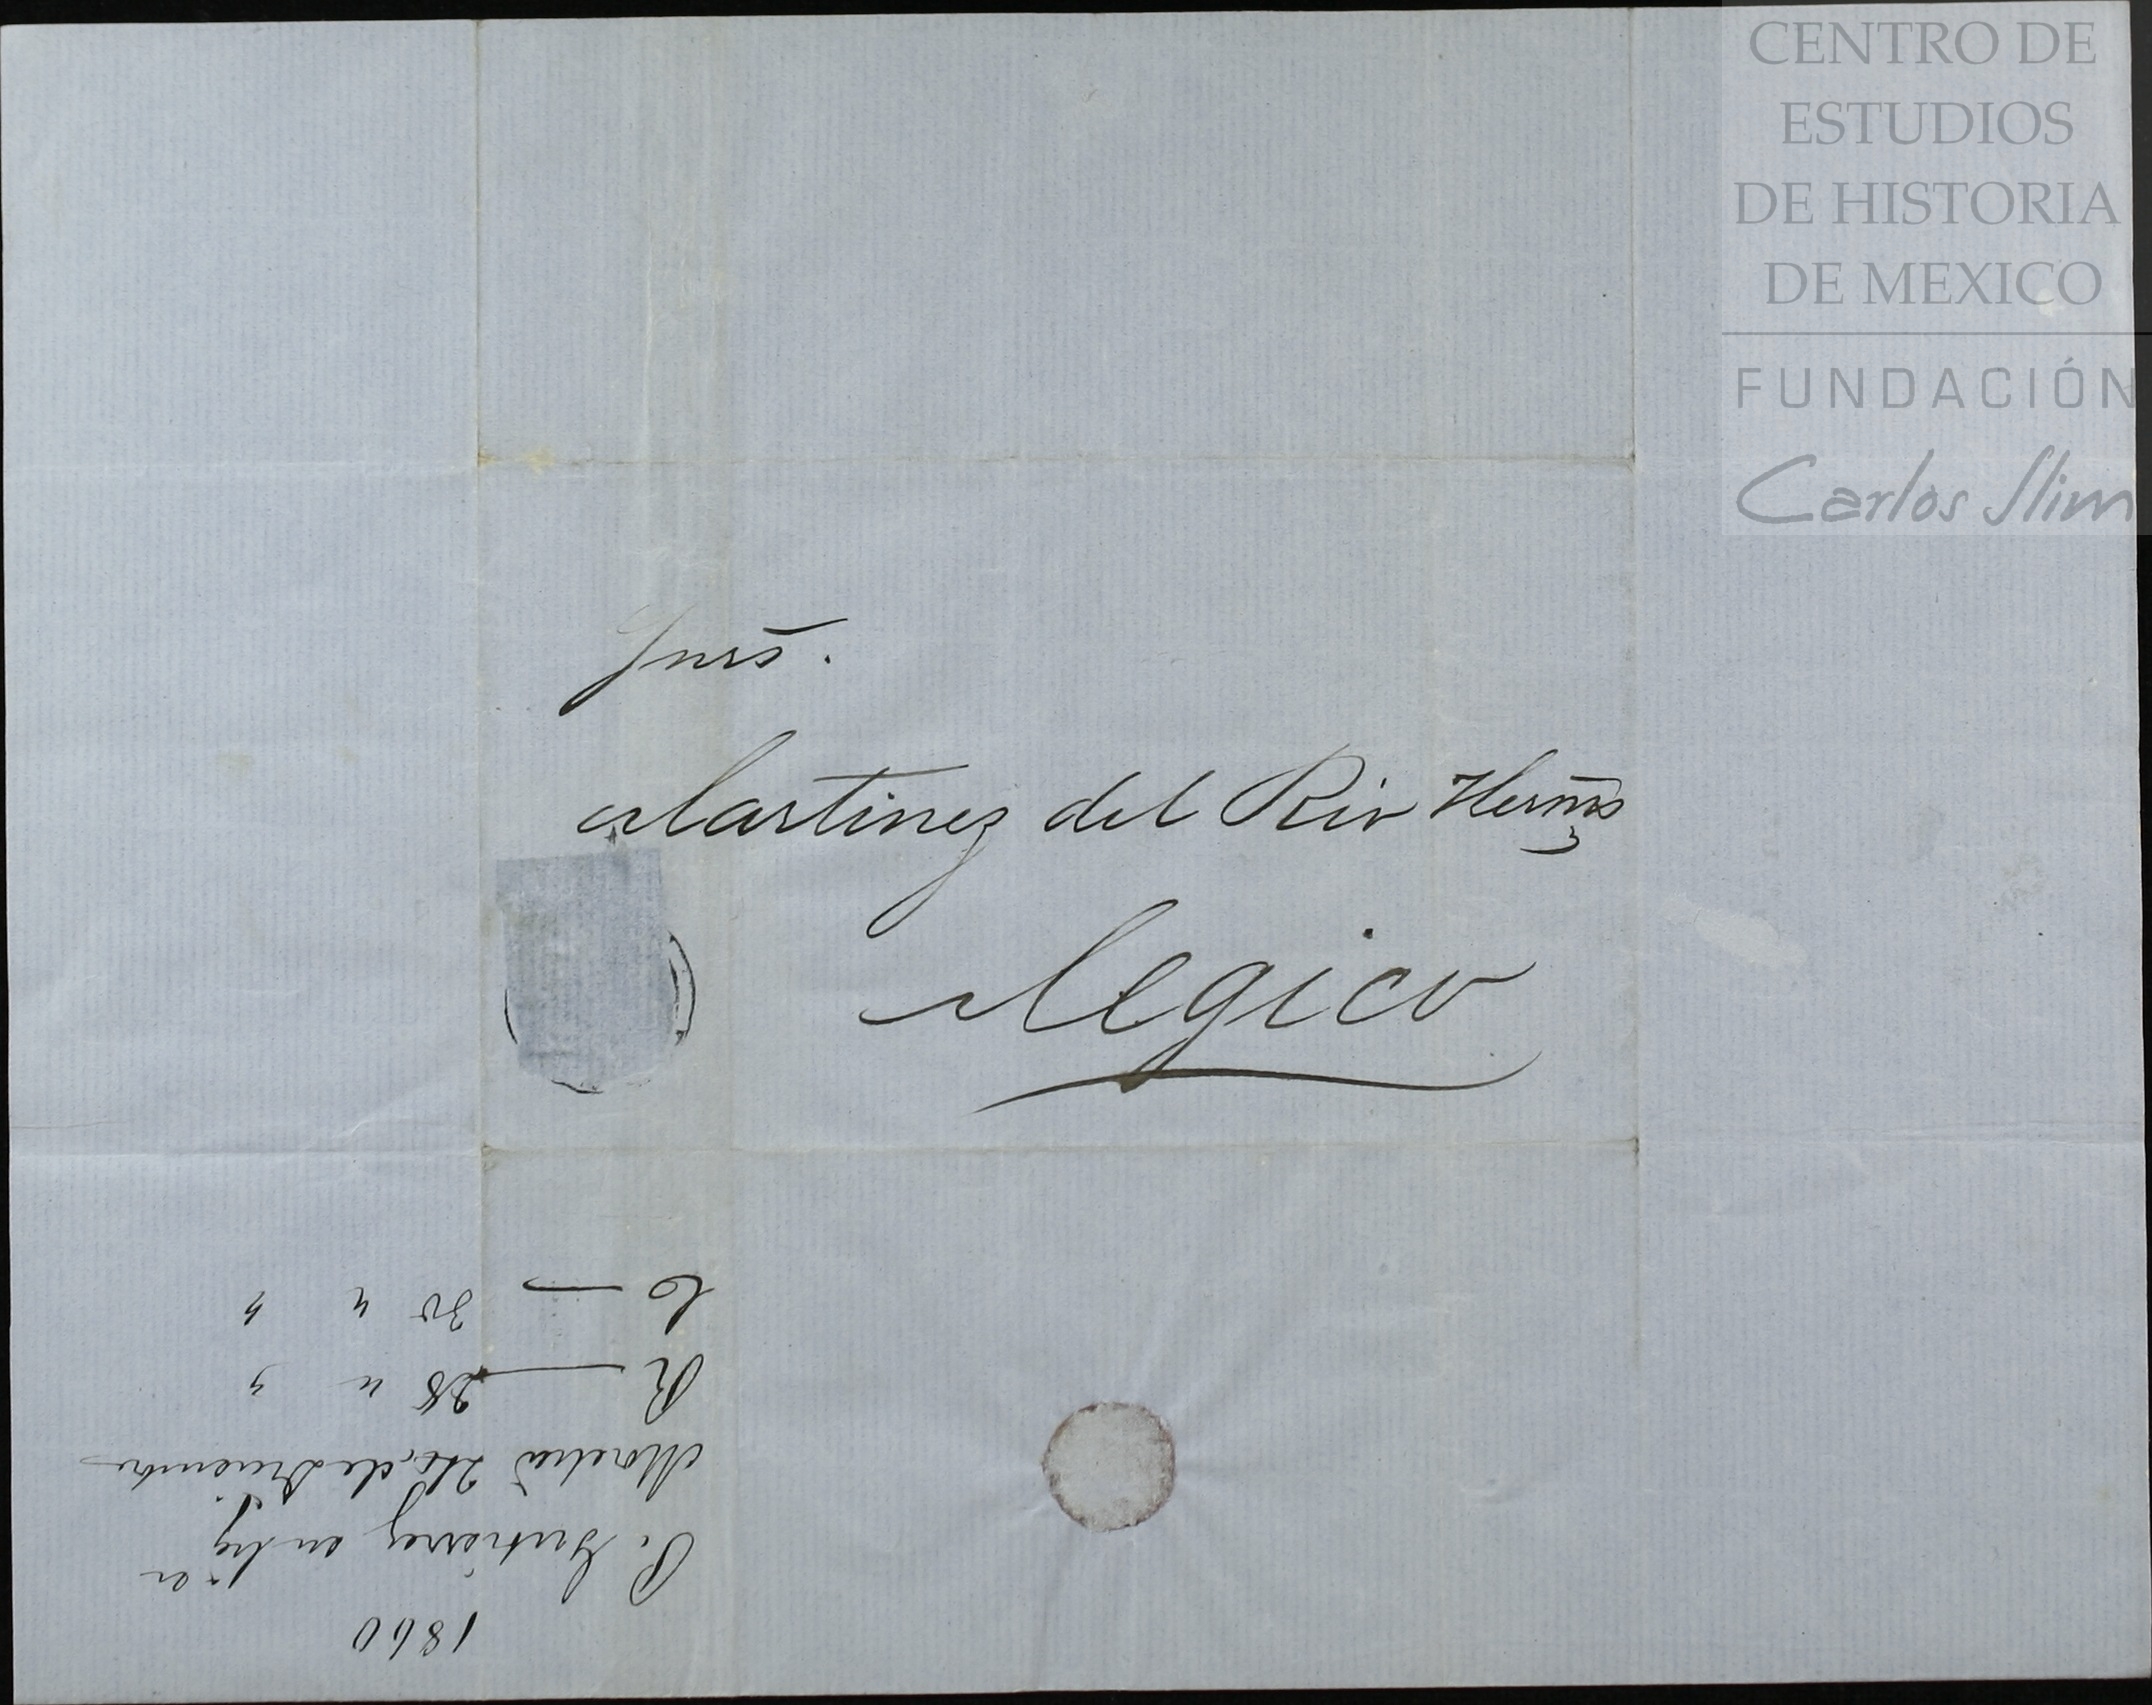 CENTRO DE
ESTUDIOS
DE HISTORIA
DE MEXICO
FUNDACIÓN
Carlos Slim
Sres.
Martinez del Rio Herms
Megico
1860
P. Gutierrez
Morelia 26 de Diciembre
R — 28 " "
C — 30 " "